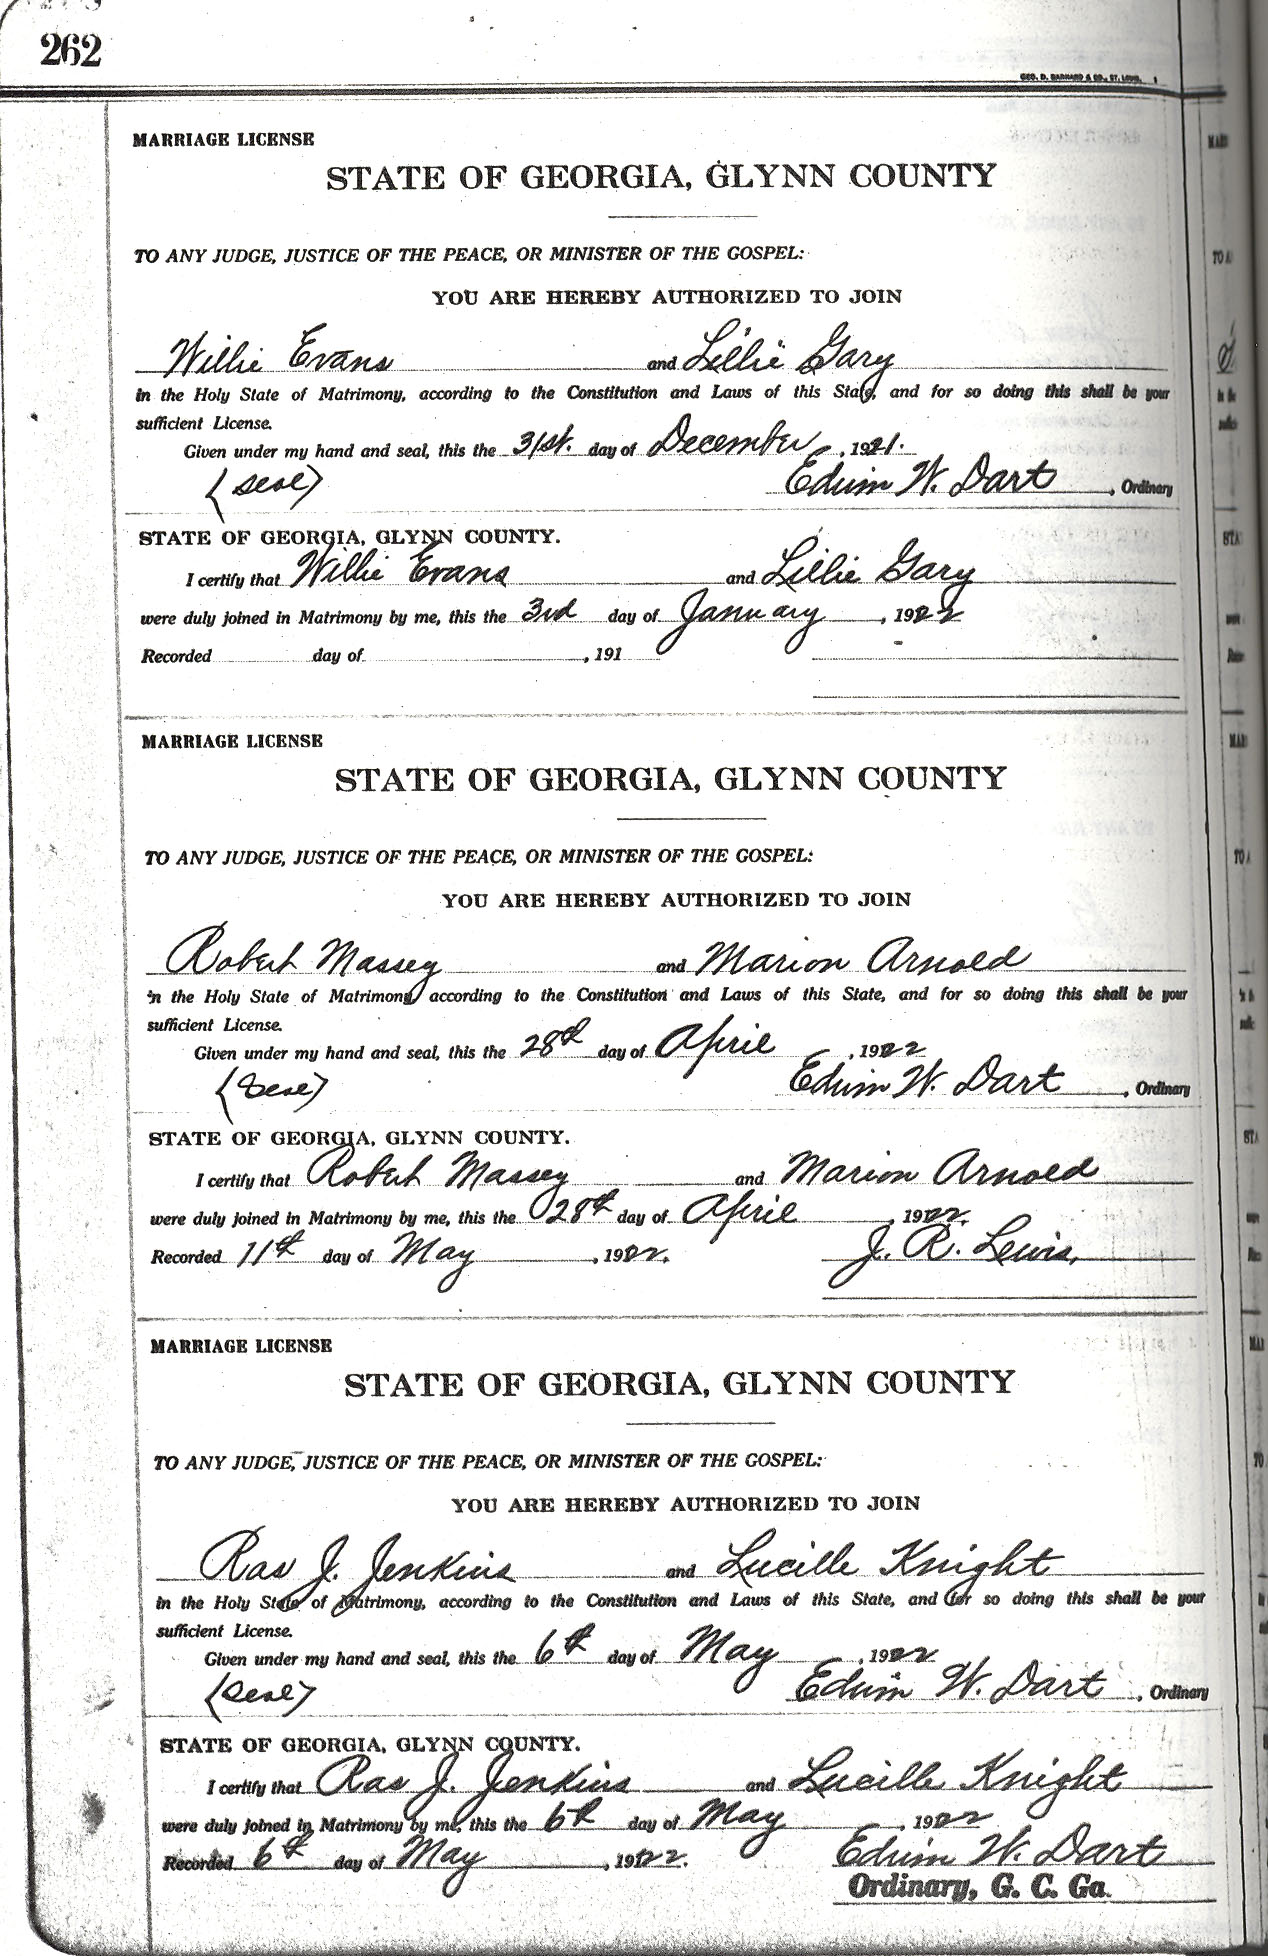 262
GEO. D. BARNARD & CO., ST. LOUIS. 1
MARRIAGE LICENSE
STATE OF GEORGIA, GLYNN COUNTY
TO ANY JUDGE, JUSTICE OF THE PEACE, OR MINISTER OF THE GOSPEL:
YOU ARE HEREBY AUTHORIZED TO JOIN
Willie Evans and Lillie Gary
in the Holy State of Matrimony, according to the Constitution and Laws of this State, and for so doing this shall be your
sufficient License.
Given under my hand and seal, this the 31st. day of December, 1921.
(Seal) Edwin W. Dart, Ordinary
STATE OF GEORGIA, GLYNN COUNTY.
I certify that Willie Evans and Lillie Gary
were duly joined in Matrimony by me, this the 3rd day of January, 1922
Recorded day of , 191
MARRIAGE LICENSE
STATE OF GEORGIA, GLYNN COUNTY
TO ANY JUDGE, JUSTICE OF THE PEACE, OR MINISTER OF THE GOSPEL:
YOU ARE HEREBY AUTHORIZED TO JOIN
Robert Massey and Marion Arnold
in the Holy State of Matrimony, according to the Constitution and Laws of this State, and for so doing this shall be your
sufficient License.
Given under my hand and seal, this the 28th day of April, 1922
(Seal) Edwin W. Dart, Ordinary
STATE OF GEORGIA, GLYNN COUNTY.
I certify that Robert Massey and Marion Arnold
were duly joined in Matrimony by me, this the 28th day of April, 1922.
Recorded 11th day of May, 1922. J. R. Lewis,
MARRIAGE LICENSE
STATE OF GEORGIA, GLYNN COUNTY
TO ANY JUDGE, JUSTICE OF THE PEACE, OR MINISTER OF THE GOSPEL:
YOU ARE HEREBY AUTHORIZED TO JOIN
Ras J. Jenkins and Lucille Knight
in the Holy State of Matrimony, according to the Constitution and Laws of this State, and for so doing this shall be your
sufficient License.
Given under my hand and seal, this the 6th day of May, 1922
(Seal) Edwin W. Dart, Ordinary
STATE OF GEORGIA, GLYNN COUNTY.
I certify that Ras J. Jenkins and Lucille Knight
were duly joined in Matrimony by me, this the 6th day of May, 1922
Recorded 6th day of May, 1922. Edwin W. Dart
Ordinary, G. C. Ga.